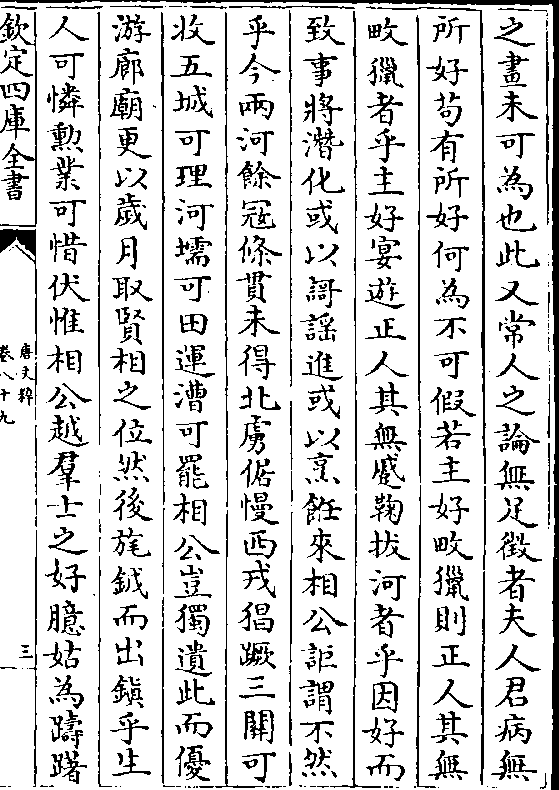 之畫未可為也此又常人之論無足徵者夫人君病無
所好苟有所好何為不可假若主好畋獵則正人其無
畋獵者乎主好宴遊正人其無蹙鞠拔河者乎因好而
致事將潛化或以謌謡進或以烹飪來相公詎謂不然
乎今兩河餘冦條貫未得北虜倨慢西戎猖蹶三關可
收五城可理河壖可田運漕可罷相公豈獨遺此而優
游廊廟更以歲月取賢相之位然後旄鉞而出鎭乎生
人可憐勲業可惜伏惟相公越羣士之好臆姑為躊躇
欽定四庫全書
唐文粹
卷八十九
三